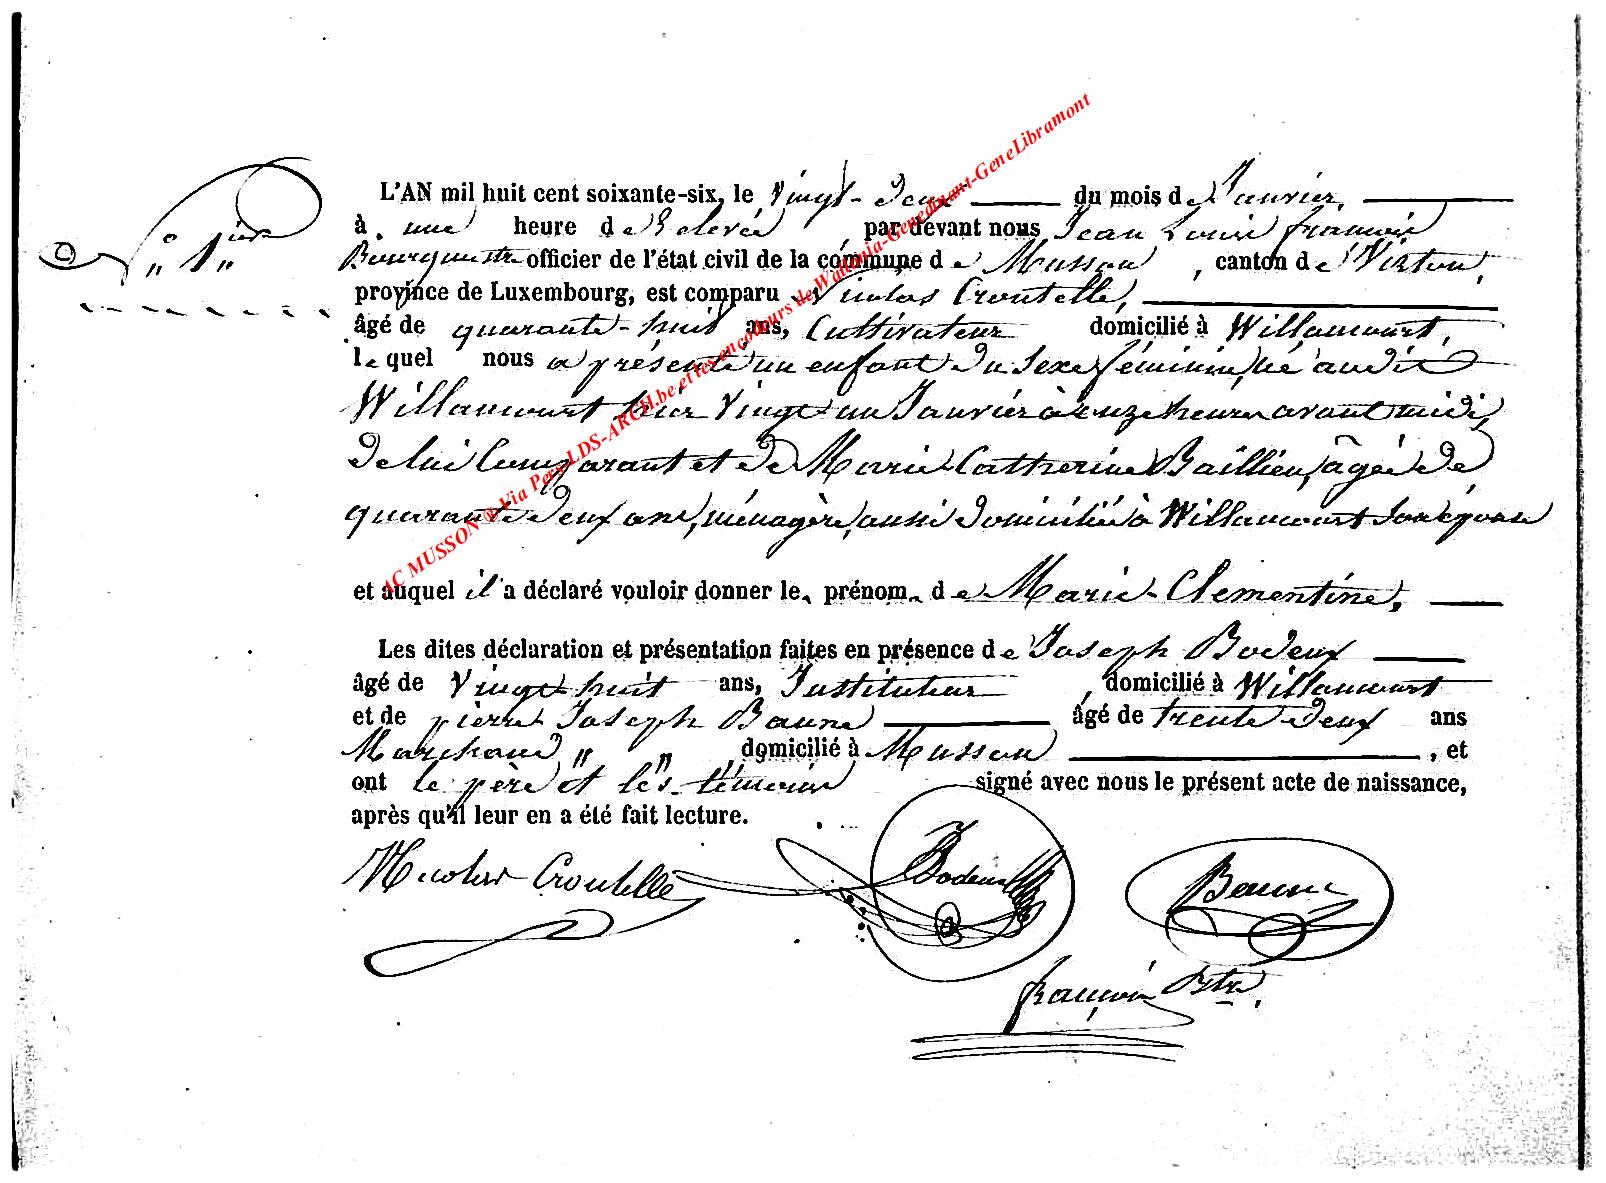 N° 1ier
L'AN mil huit cent soixante-six, le vingt-deux du mois de Janvier,
à une heure de relevée par devant nous Jean Louis françois
Bourgmestre officier de l'état civil de la commune de Musson, canton de Virton,
province de Luxembourg, est comparu Nicolas Croutelle,
âgé de quarante-huit ans, Cultivateur domicilié à Willancourt,
lequel nous a présenté un enfant du sexe féminin, né audit
Willancourt hier vingt un Janvier à onze heures avant midi,
de lui Comparant et de Marie Catherine Baillieu, âgée de
quarante deux ans, ménagère, aussi domiciliée à Willancourt son épouse
et auquel il a déclaré vouloir donner les prénoms de Marie-Clementine,
Les dites déclaration et présentation faites en présence de Joseph Bodeux
âgé de vingt-huit ans, Instituteur, domicilié à Willancourt
et de pierre Joseph Baune âgé de trente deux ans
Marchand " " domicilié à Musson, et
ont le père et les témoins signé avec nous le présent acte de naissance,
après qu'il leur en a été fait lecture.
Nicolas Croutelle Bodeux Baune
françois Btre.
AC MUSSON ® Via Pers-LDS-ARCH.be et les encodeurs de Wallonia-Genedinant-GeneLibramont